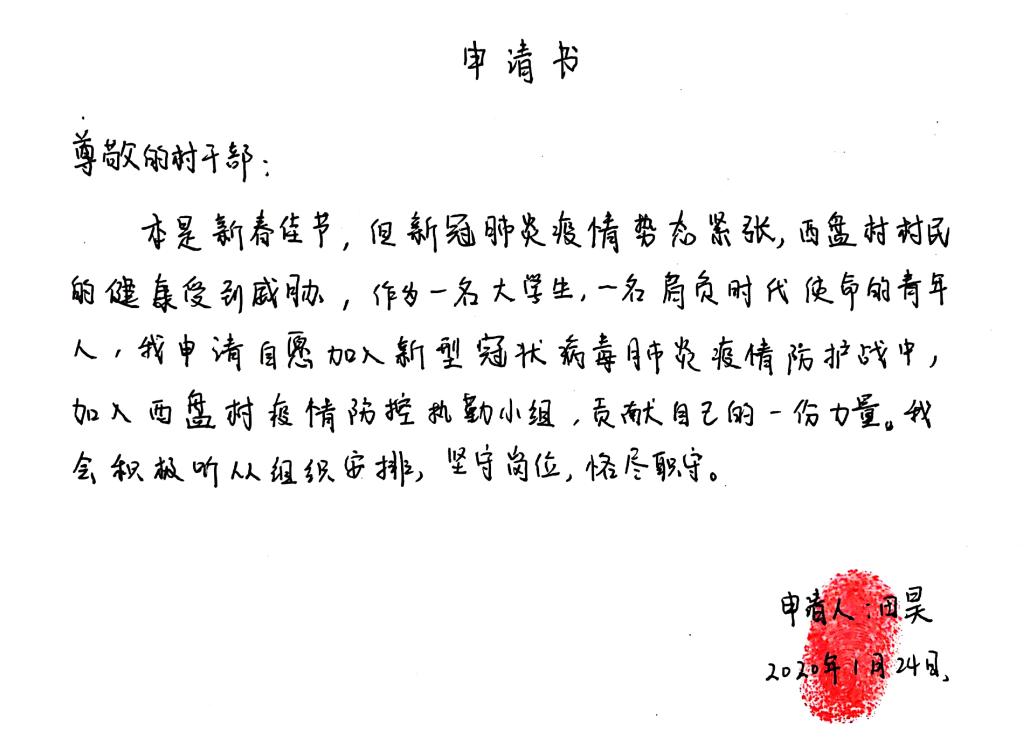 申请书
尊敬的村干部：
本是新春佳节，但新冠肺炎疫情势态紧张，西盘村村民
的健康受到威胁，作为一名大学生，一名肩负时代使命的青年
人，我申请自愿加入新型冠状病毒肺炎疫情防护战中，
加入西盘村疫情防控执勤小组，贡献自己的一份力量。我
会积极听从组织安排，坚守岗位，恪尽职守。
申请人：田昊
2020年1月24日